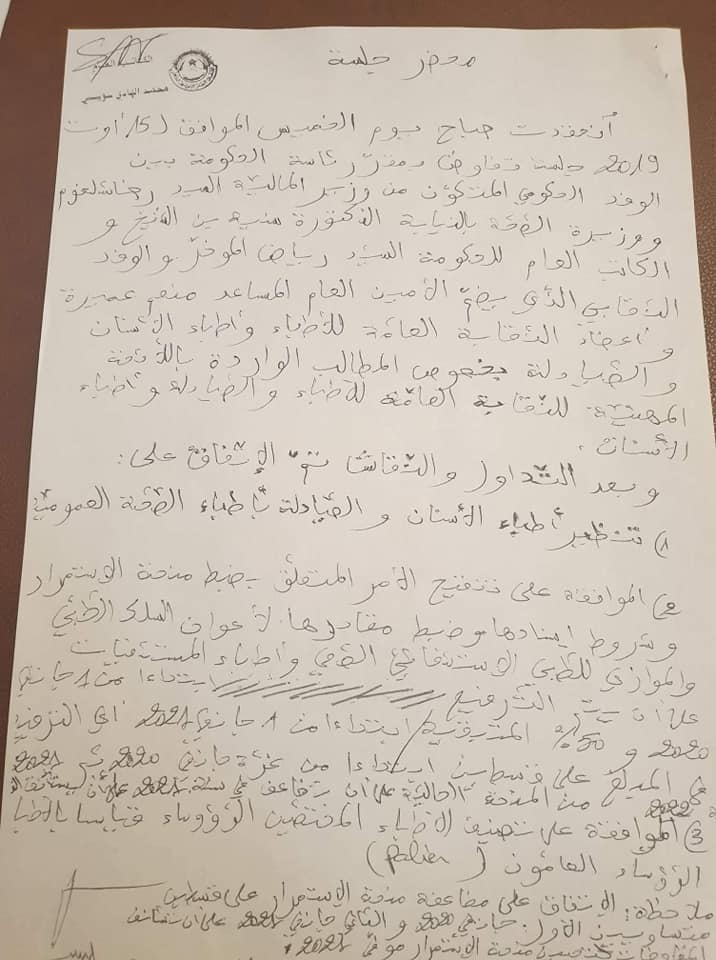 محضر جلسة
محمد الهادي سويسي
أنعقدت صباح يوم الخميس الموافق لـ 15 أوت
2019 جلسة تفاوض بمقر رئاسة الحكومة بين
الوفد الحكومي المتكون من وزير المالية السيد رضا شلغوم
ووزيرة الصحة بالنيابة الدكتورة سنية بن الشيخ و
الكاتب العام للحكومة السيد رياض الموخر والوفد
النقابي الذي يضم الأمين العام المساعد منعم عميرة
وأعضاء النقابة العامة للأطباء وأطباء الأسنان
والصيادلة بخصوص المطالب الواردة باللائحة
المهنية للنقابة العامة للأطباء والصيادلة وأطباء
الأسنان.
وبعد التداول والنقاش تم الإتفاق على:
1) تنظير أطباء الأسنان والصيادلة بأطباء الصحة العمومية
2) الموافقة على تنقيح الأمر المتعلق بضبط منحة الاستمرار
وشروط إسنادها وضبط مقاديرها لأعوان السلك الطبي
والموازي للطبي الإستشفائي الصحي وأطباء المستشفيات
على أن يتم الترفيع ابتداءا من 1 جانفي
2020 و 50% المتبقية ابتداءا من 1 جانفي 2021 أي الترفيع
في المبلغ على قسطين ابتداءا من غرة جانفي 2020 ثم 2021
من المنحة الحالية على أن تضاعف في سنة 2021 على أن
2022
3) الموافقة على تصنيف الأطباء المختصين الرؤوساء قياسا بالأطباء
الرؤساء العامون (Palier)
ملاحظة: الإتفاق على مضاعفة منحة الاستمرار على قسطين
متساويين الأول: جانفي 2020 والثاني جانفي 2021 على أن تستأنف
المفاوضات بخصوص منحة الاستمرار موفى 2021.